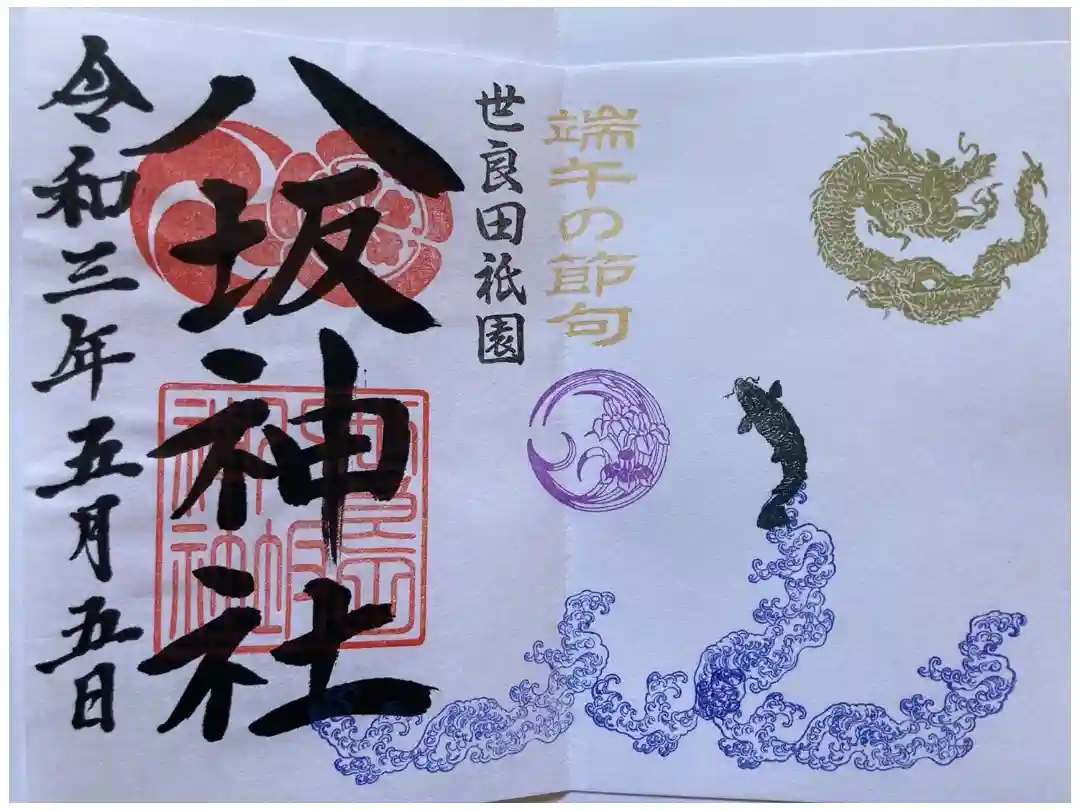 端午の節句
世良田祇園
八坂神社
令和三年五月五日